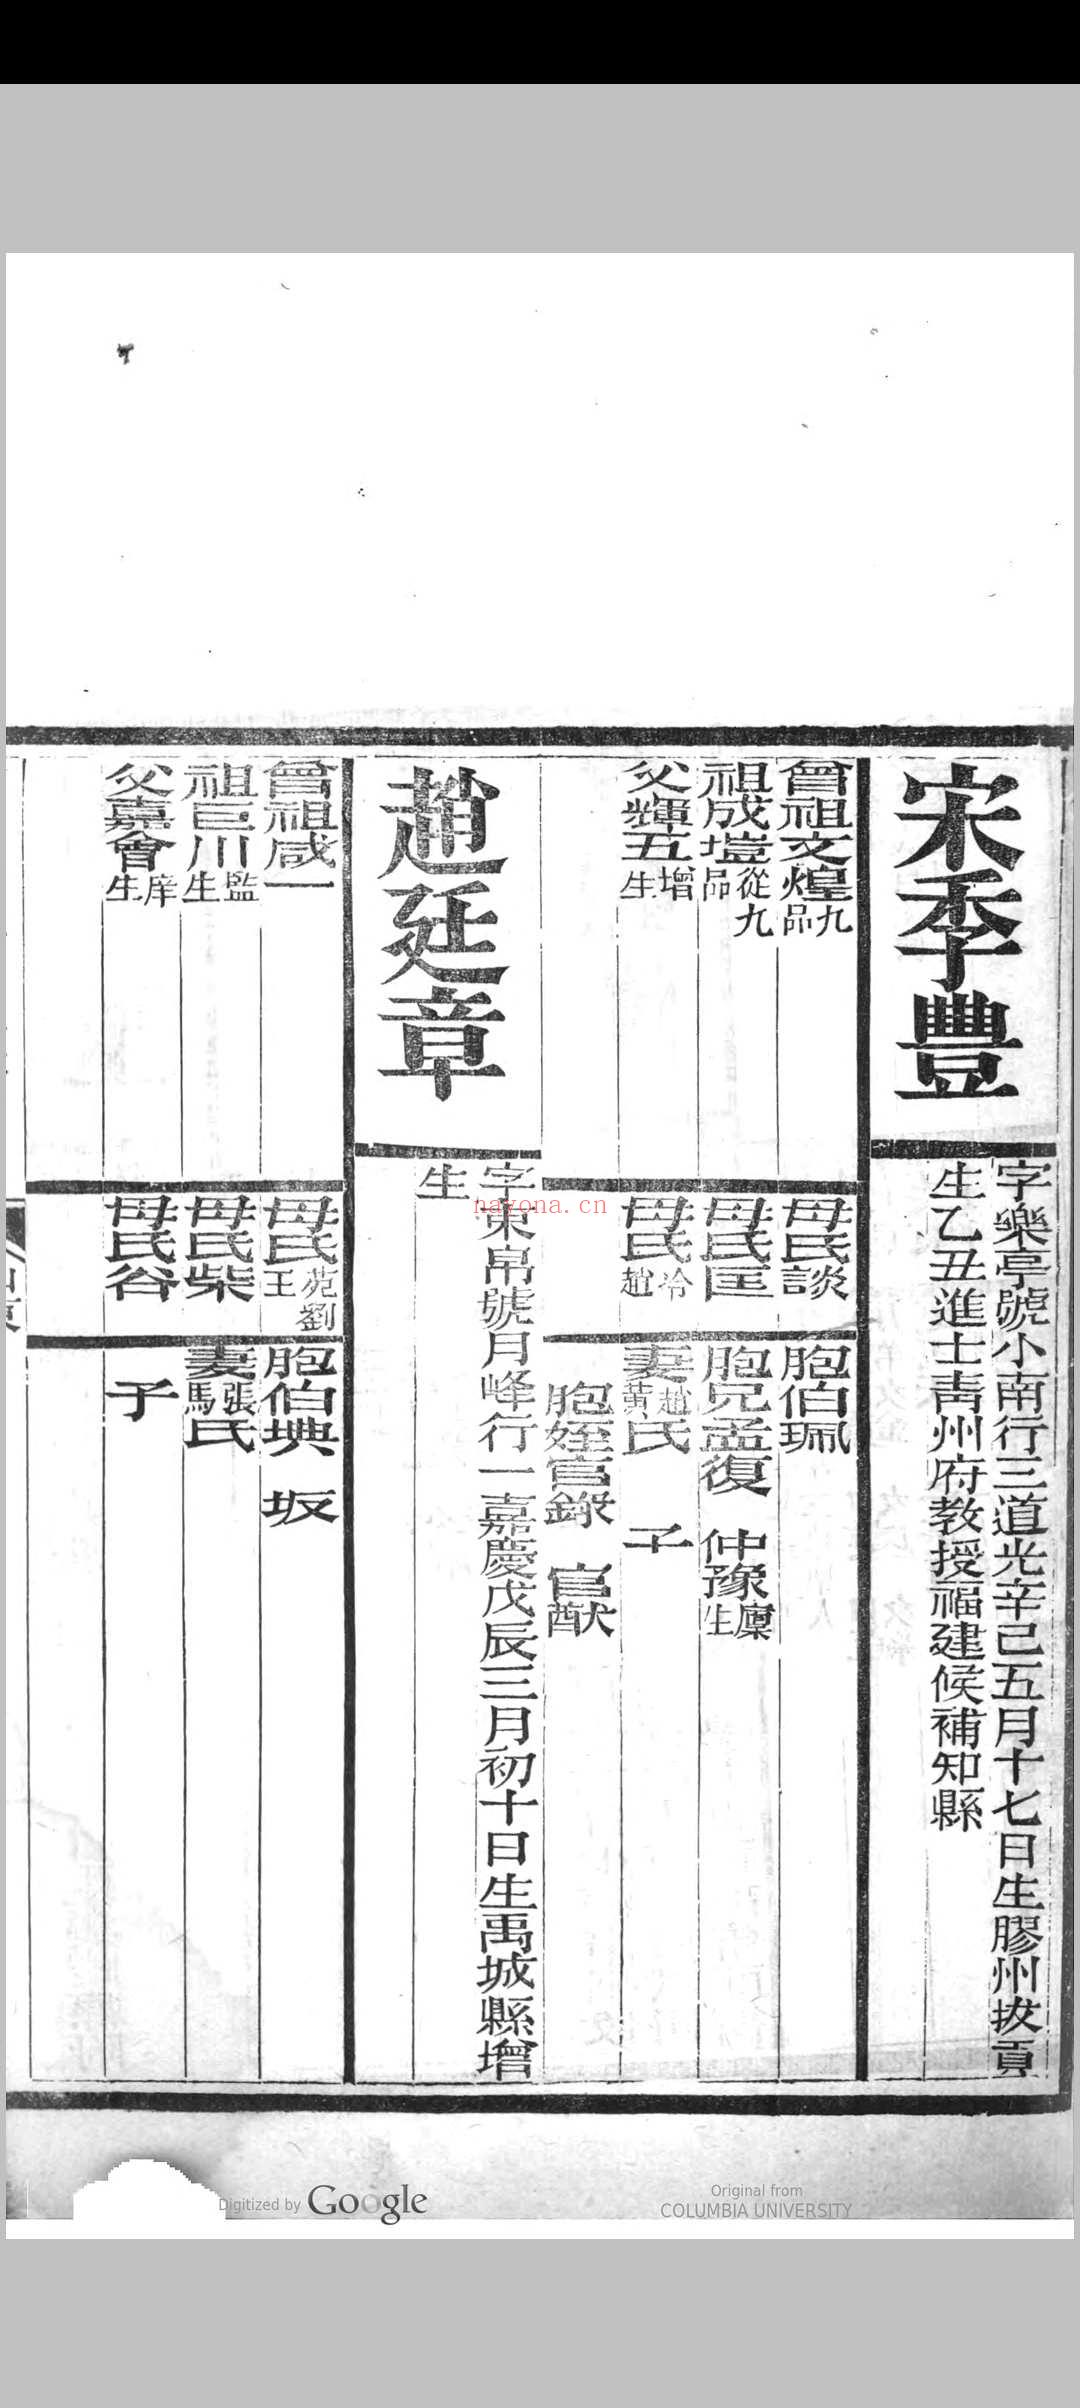 宋季豐
字樂亭號小南行三道光辛巳五月十七日生膠州拔貢
生乙丑進士青州府教授福建候補知縣
曾祖文煌九品
祖成塏從九品
父輝五增生
母氏談
母氏匡
母氏冷趙
胞伯珮
胞兄孟復 仲豫廩生
妻趙黃氏 子
胞姪官錄 官猷
趙廷章
字東帛號月峰行一嘉慶戊辰三月初十日生禹城縣增
生
曾祖咸一
祖巨川監生
父嘉會庠生
母氏苑劉王
母氏柴
母氏谷
胞伯㙉 坂
妻張馬氏
子
山東
nayona.cn
Digitized by Google
Original from
COLUMBIA UNIVERSITY